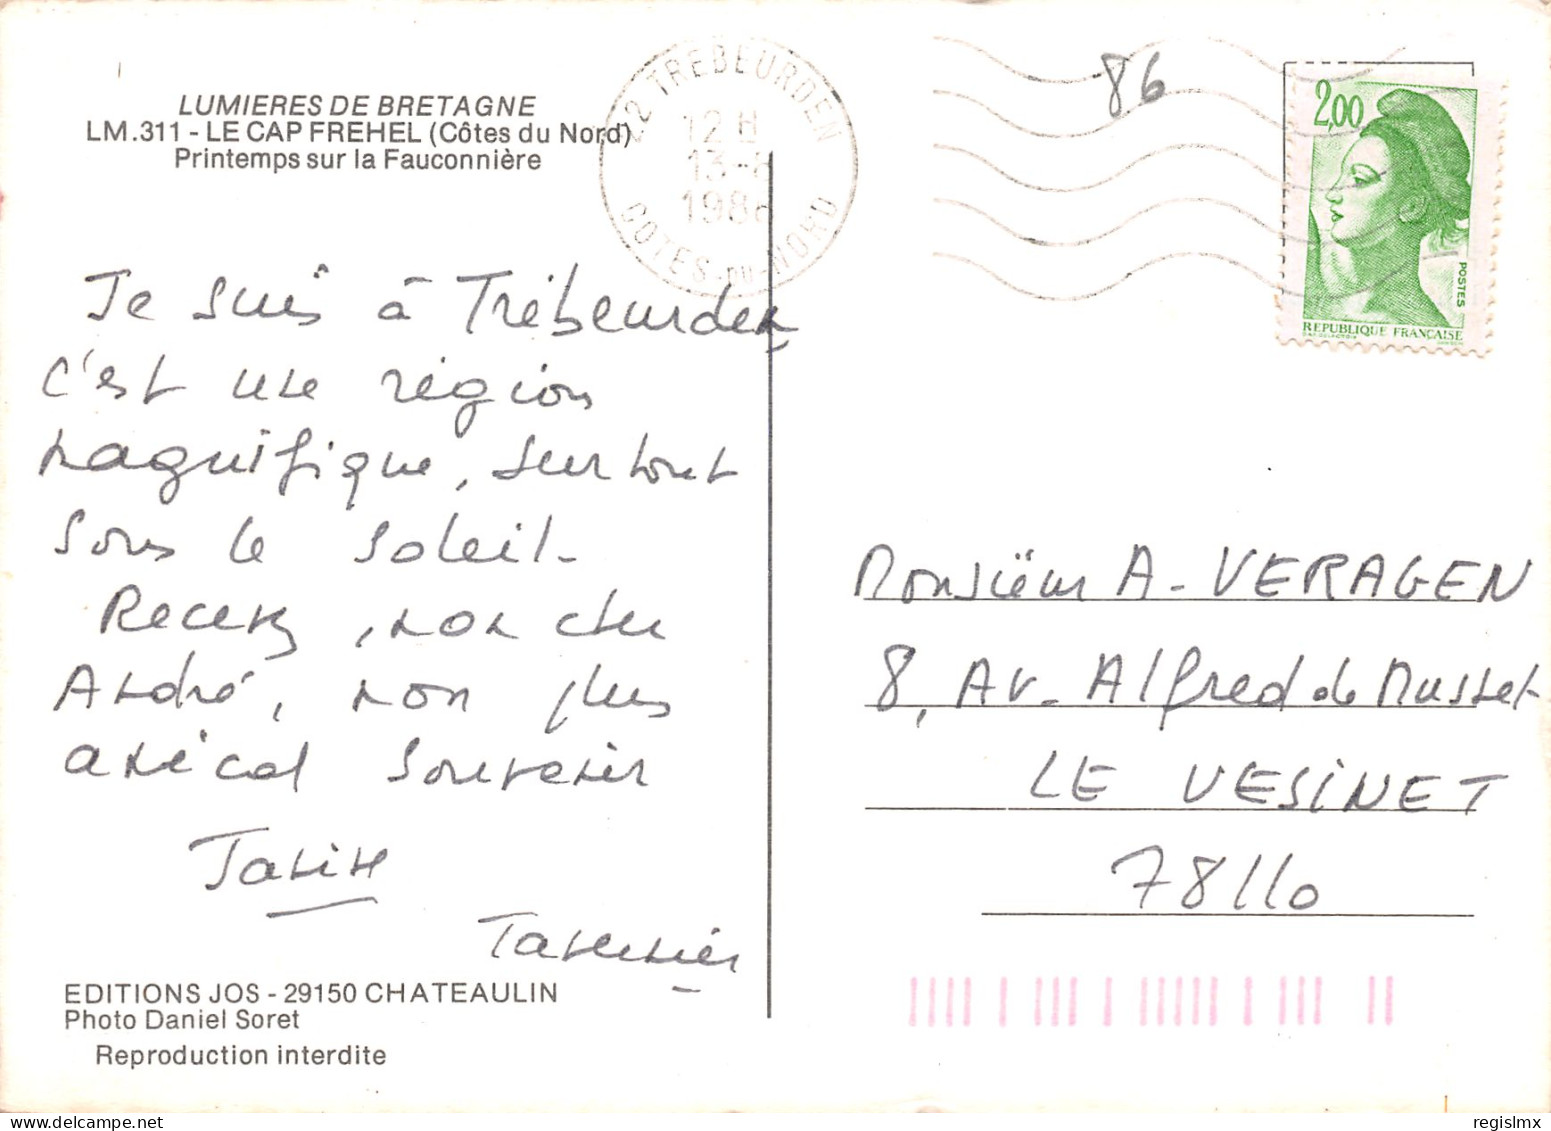 LUMIERES DE BRETAGNE
LM.311 - LE CAP FREHEL (Côtes du Nord)
Printemps sur la Fauconnière
22 TREBEURDEN
12 H
13-8
1986
COTES-DU-NORD
86
2,00
POSTES
REPUBLIQUE FRANÇAISE
Je suis à Trébeurden
c'est une région
magnifique, surtout
sous le soleil-
Recevez, mon cher
André, mon plus
amical souvenir
Tavernier
Monsieur A. VERAGEN
8, Av. Alfred de Musset
LE VESINET
78110
EDITIONS JOS - 29150 CHATEAULIN
Photo Daniel Soret
Reproduction interdite
regislmx